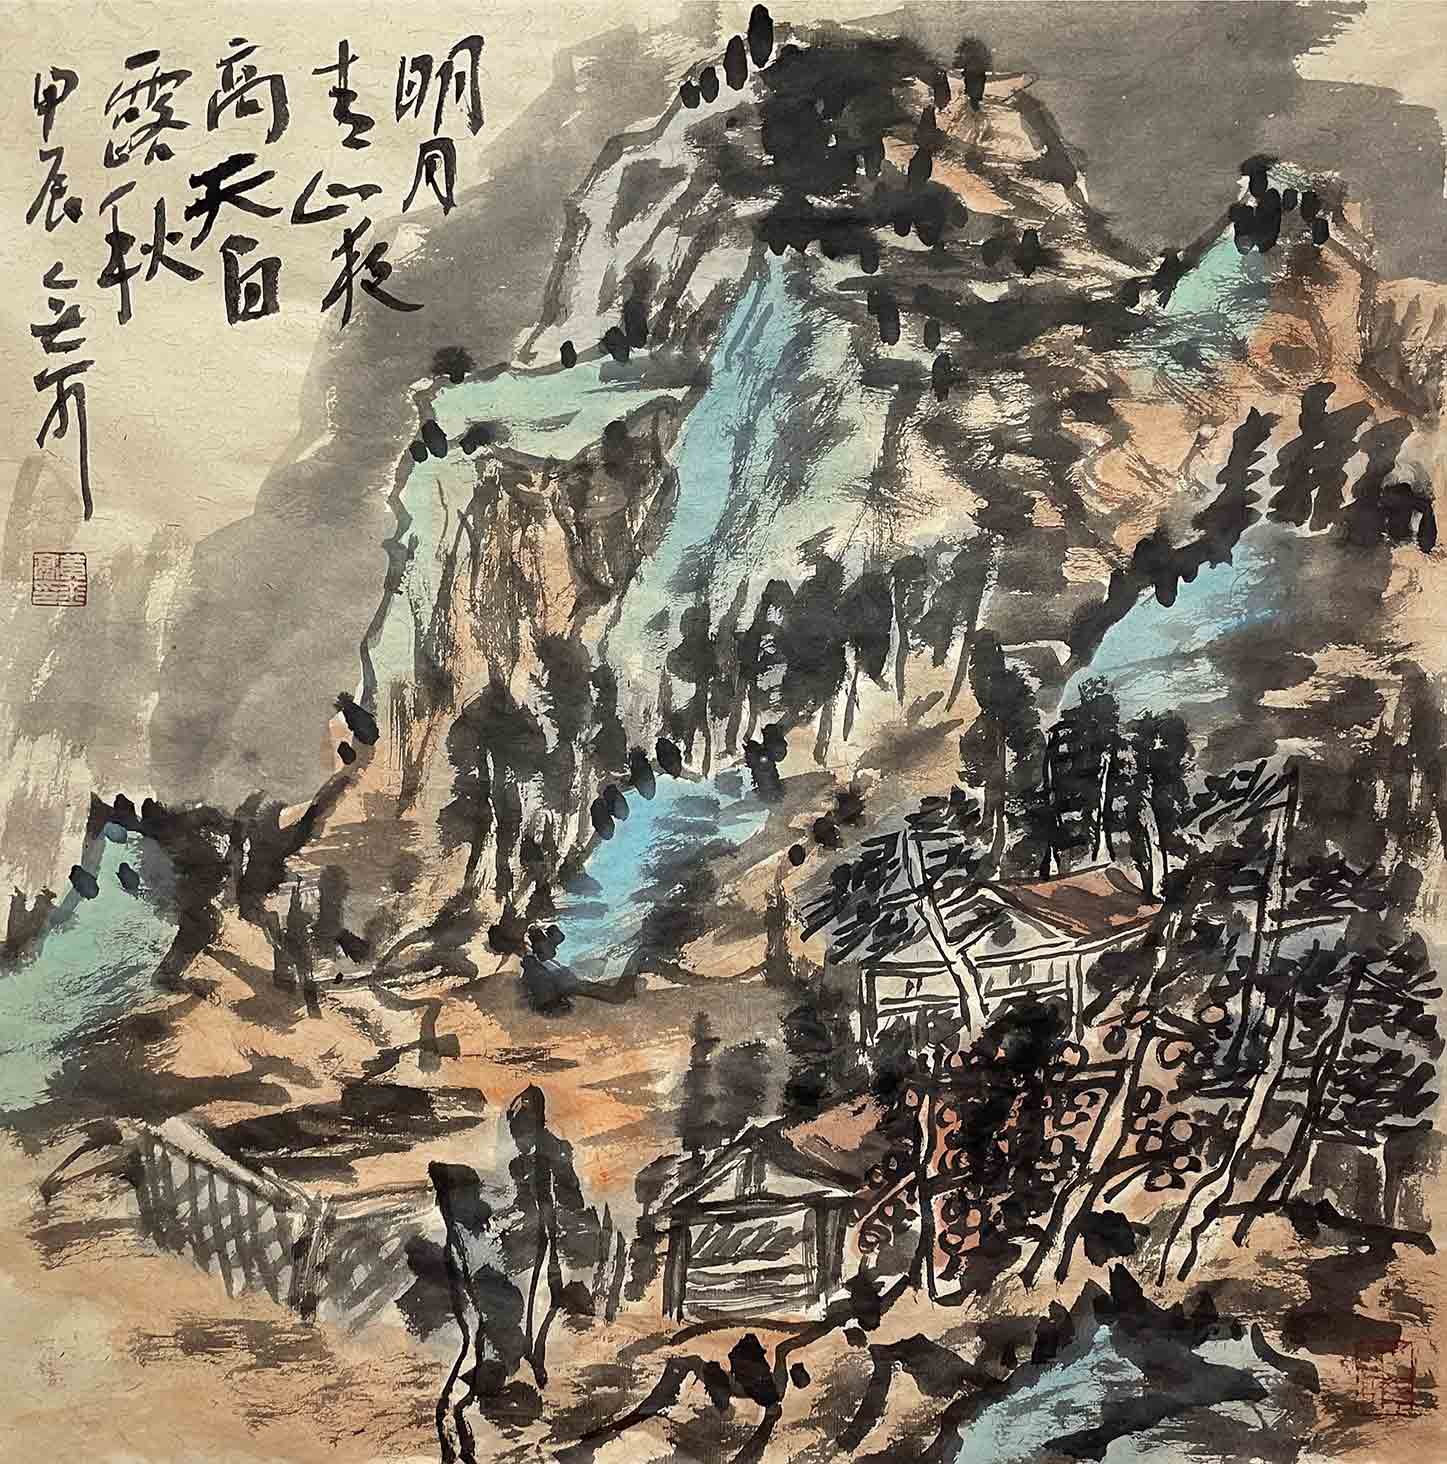 明月
青山夜
高天白
露秋
甲辰